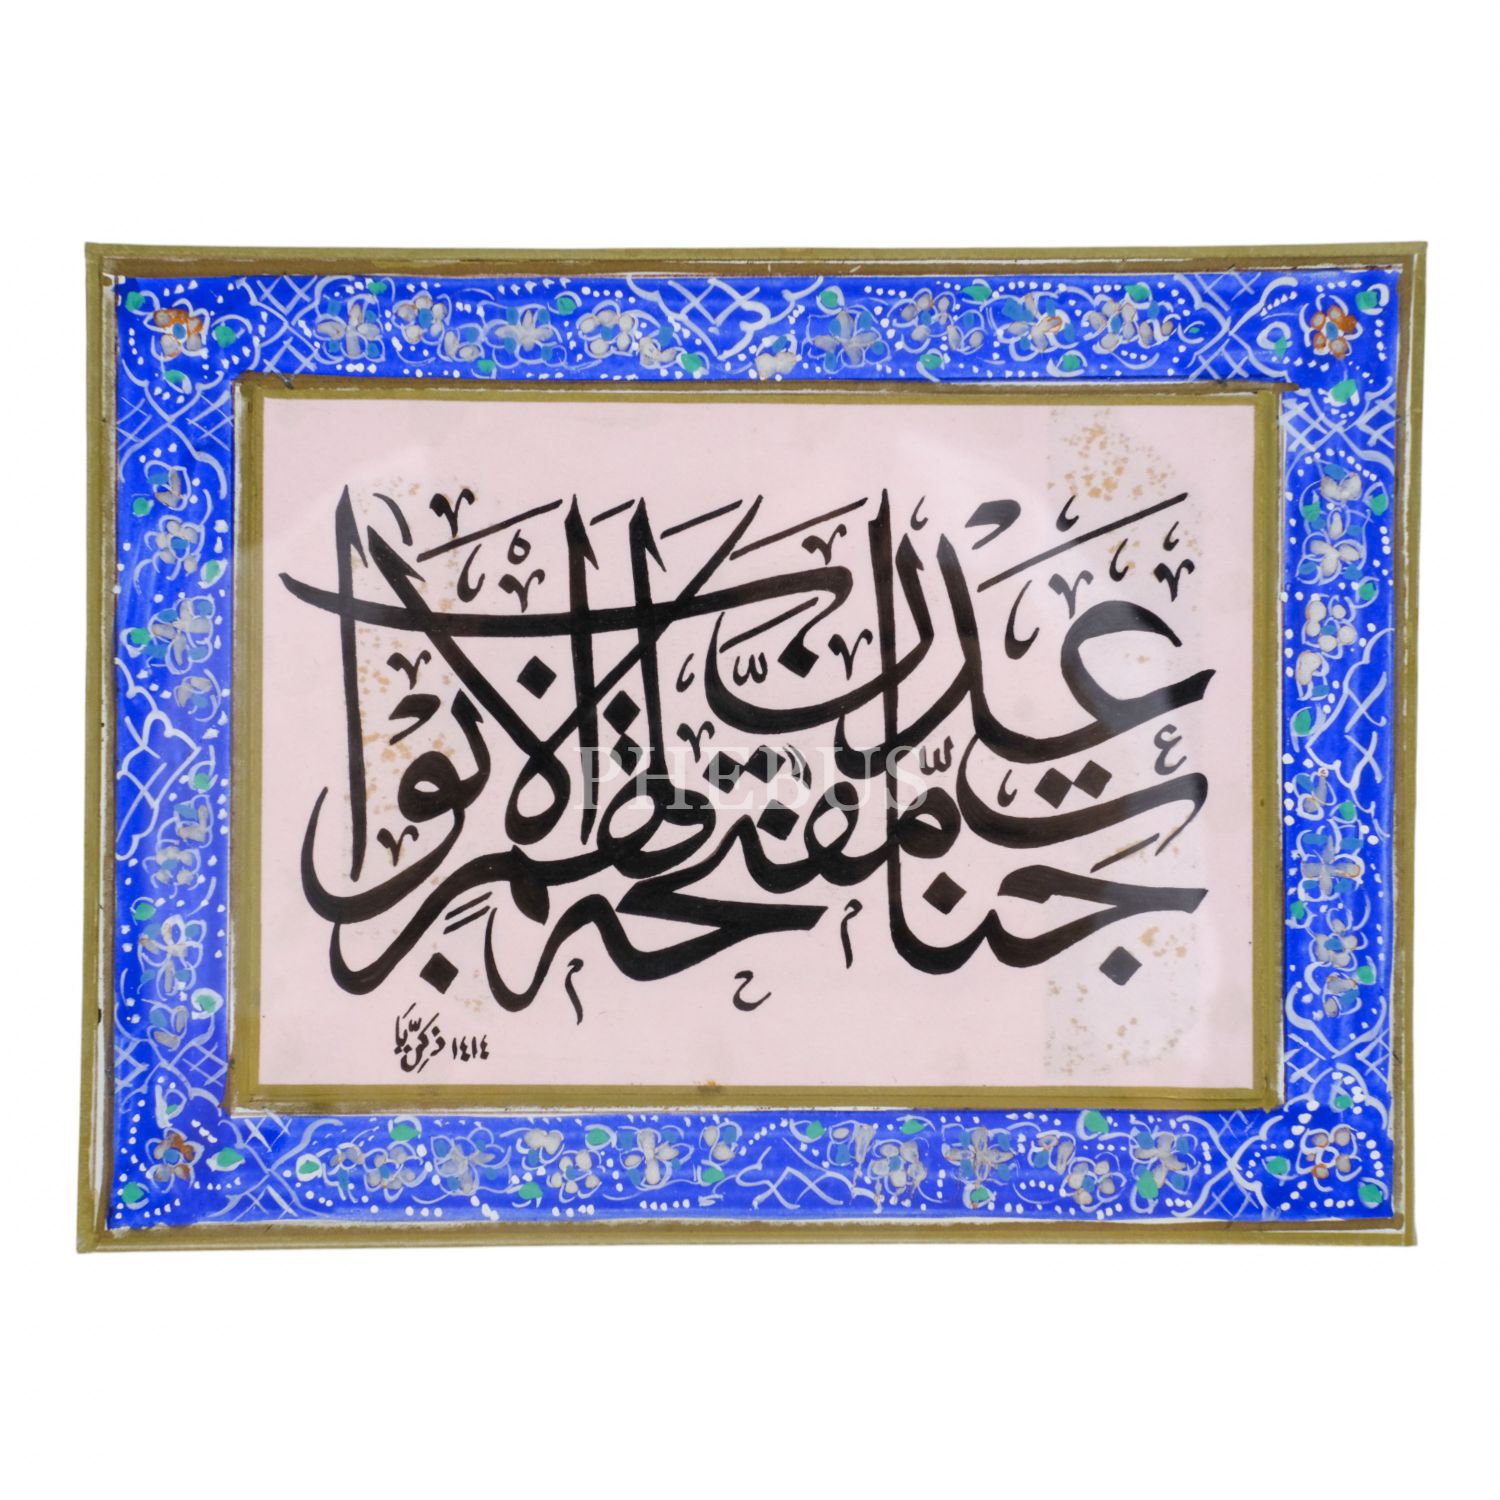 جنات عدن مفتحة لهم الابواب
زكريّا ١٤١٤
PHEBUS